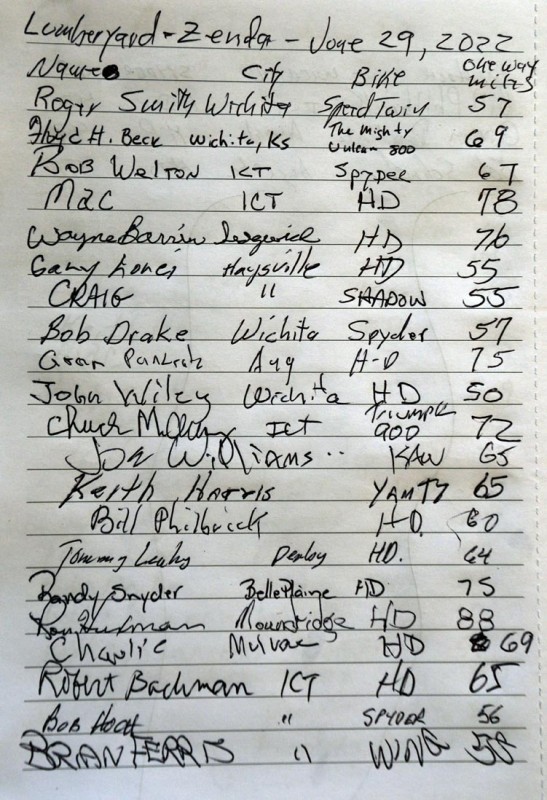 Lumberyard - Zenda - June 29, 2022
Name City Bike one way miles
Roger Smith Wichita Speed Twin 57
Floyd H. Beck Wichita, Ks The Mighty Vulcan 800 69
BOB WELTON ICT SPYDER 67
Mac ICT HD 78
Wayne HD 76
Gary Jones Haysville HD 55
CRAIG " SHADOW 55
Bob Drake Wichita Spyder 57
Aug H-D 75
John Wiley Wichita HD 50
Chuck ICT Triumph 900 72
Joe Williams " KAW 65
Keith Harris 65
Bill Philbrick HD. 60
Tommy Leahy Derby HD. 64
Randy Snyder Belle Plaine HD 75
Moundridge HD 88
Charlie Mulvane HD 69
Robert Bachman ICT HD 65
BOB " SPYDER 56
BRIAN FERRIS " WING 58